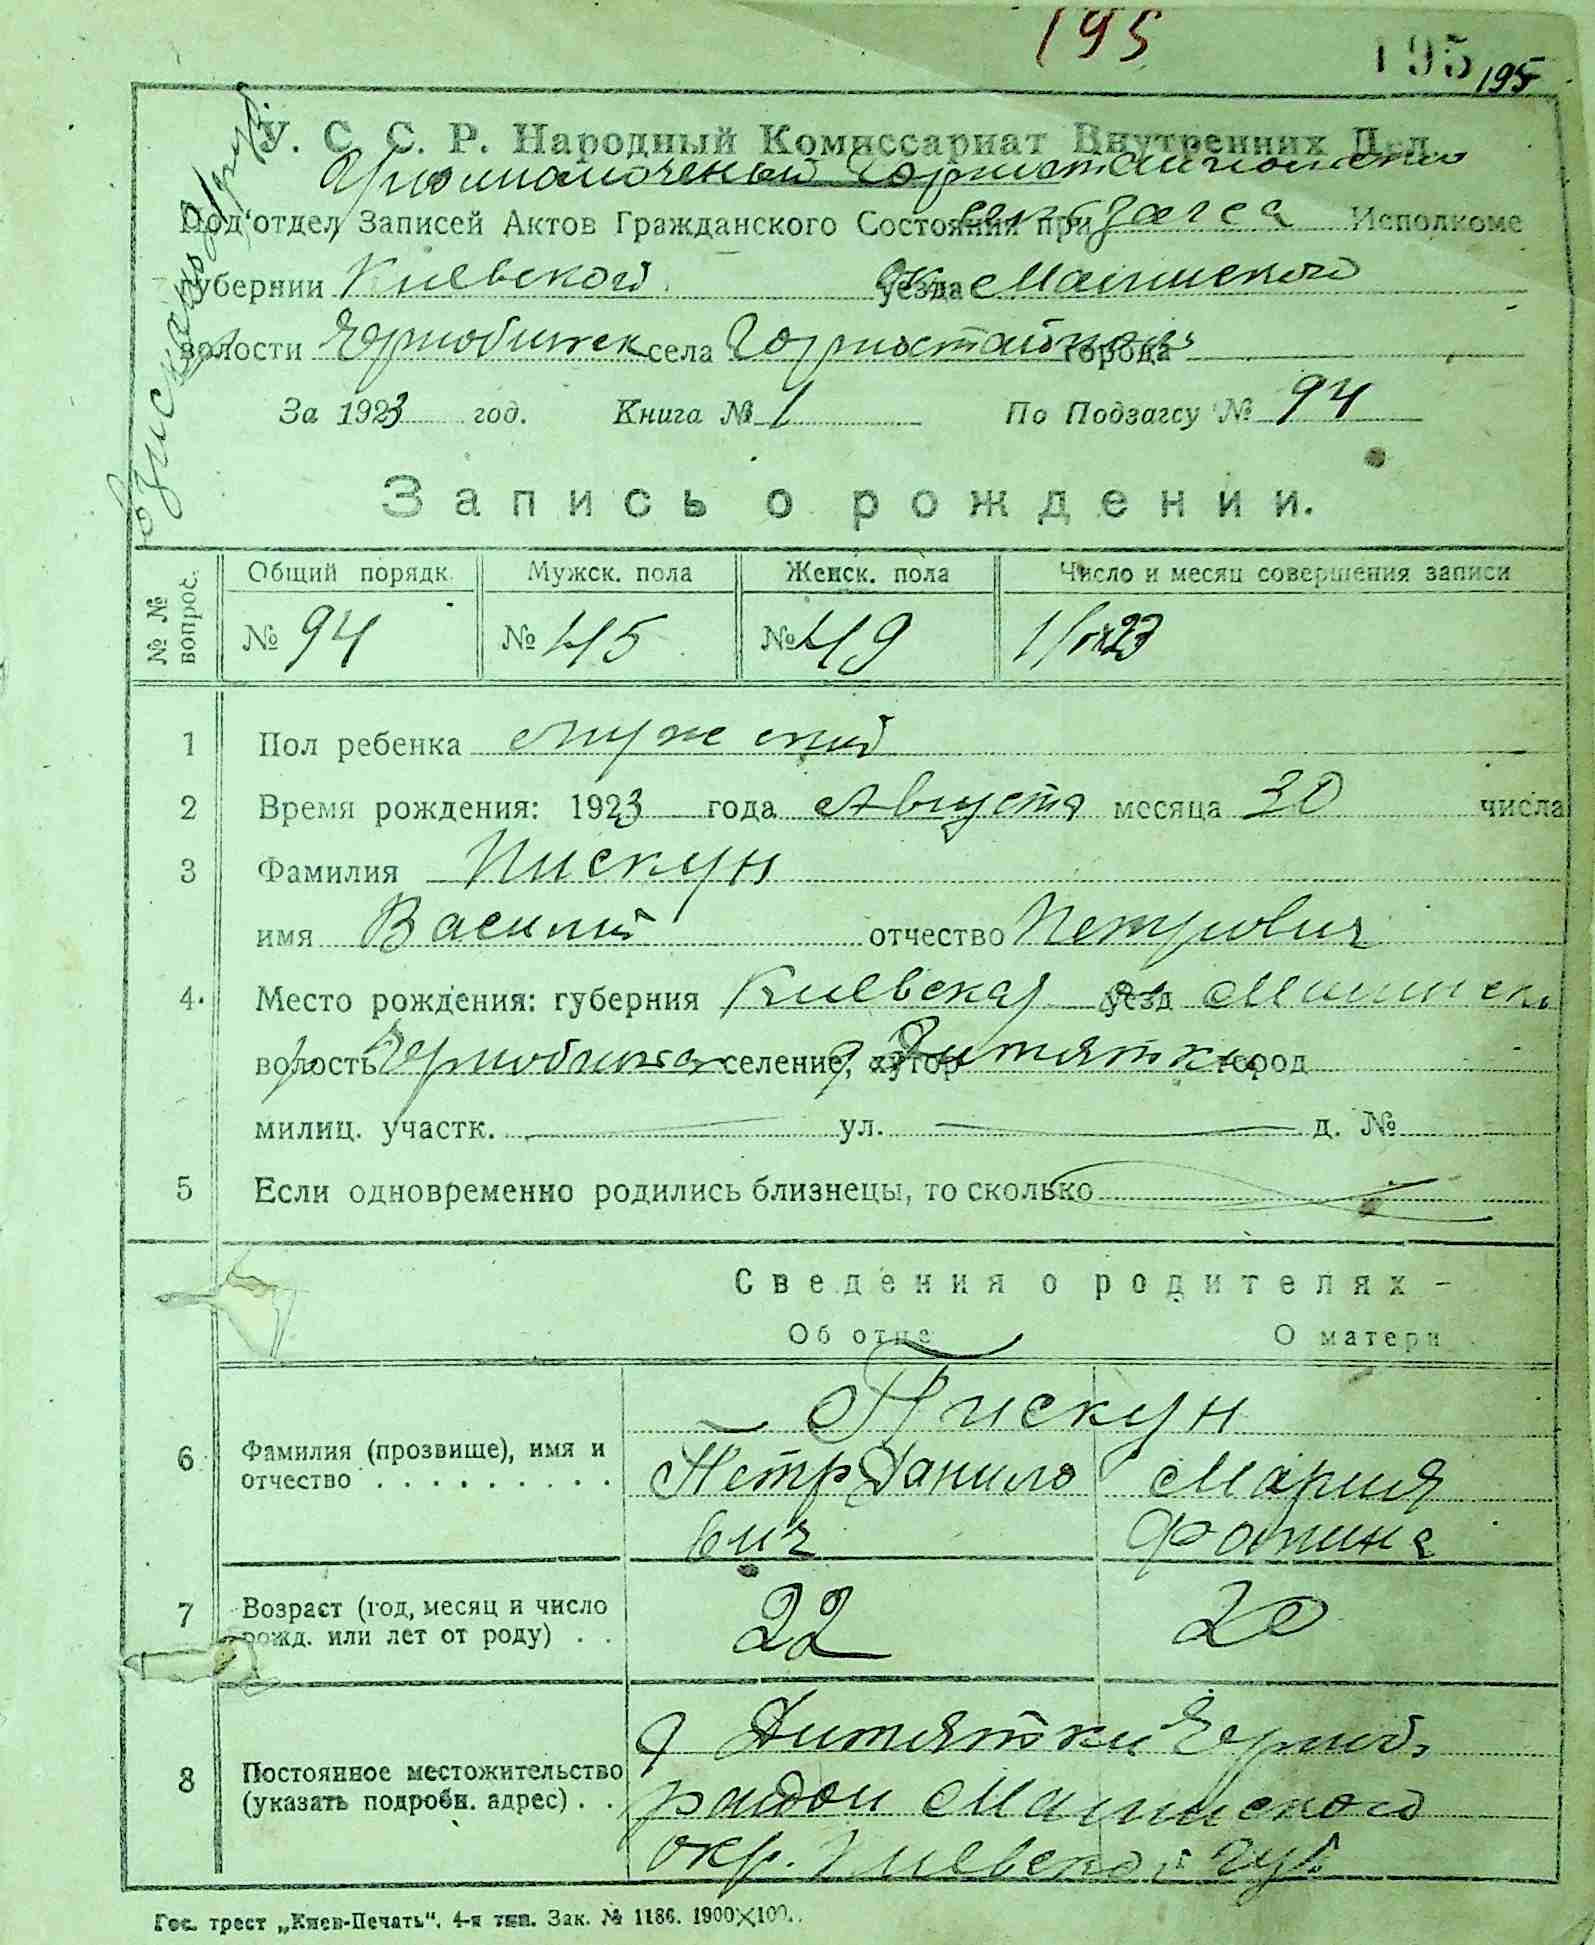 195
195 195
У. С. С. Р. Народный Комиссариат Внутренних Дел
Под'отдел Записей Актов Гражданского Состояния при загса Исполкоме
губернии Киевской уезда Малинской
волости Чернобильск села Горностайполь города
За 1923 год. Книга № 1 По Подзагсу № 94
Запись о рождении.
№ № вопрос.
Общий порядк. Мужск. пола Женск. пола Число и месяц совершения записи
№ 94 № 45 № 49
1 Пол ребенка мужский
2 Время рождения: 1923 года Августа месяца 30 числа
3 Фамилия Пискун
имя Василий отчество Петрович
4. Место рождения: губерния Киевская уезд Малинск.
волость Чернобильск селение, хутор д Дитятки город
милиц. участк. ул. д. №
5 Если одновременно родились близнецы, то сколько
Сведения о родителях -
Об отце О матери
Пискун
6 Фамилия (прозвище), имя и отчество . . . . . . . . .
Петр Данило Мария
вич
7 Возраст (год, месяц и число рожд. или лет от роду) . .
22 20
8 Постоянное местожительство (указать подробн. адрес) . .
д Дитятки Черноб.
район Малинской
окр. Киевской губ.
Гос. трест „Киев-Печать“. 4-я тип. Зак. № 1186. 1900×100.